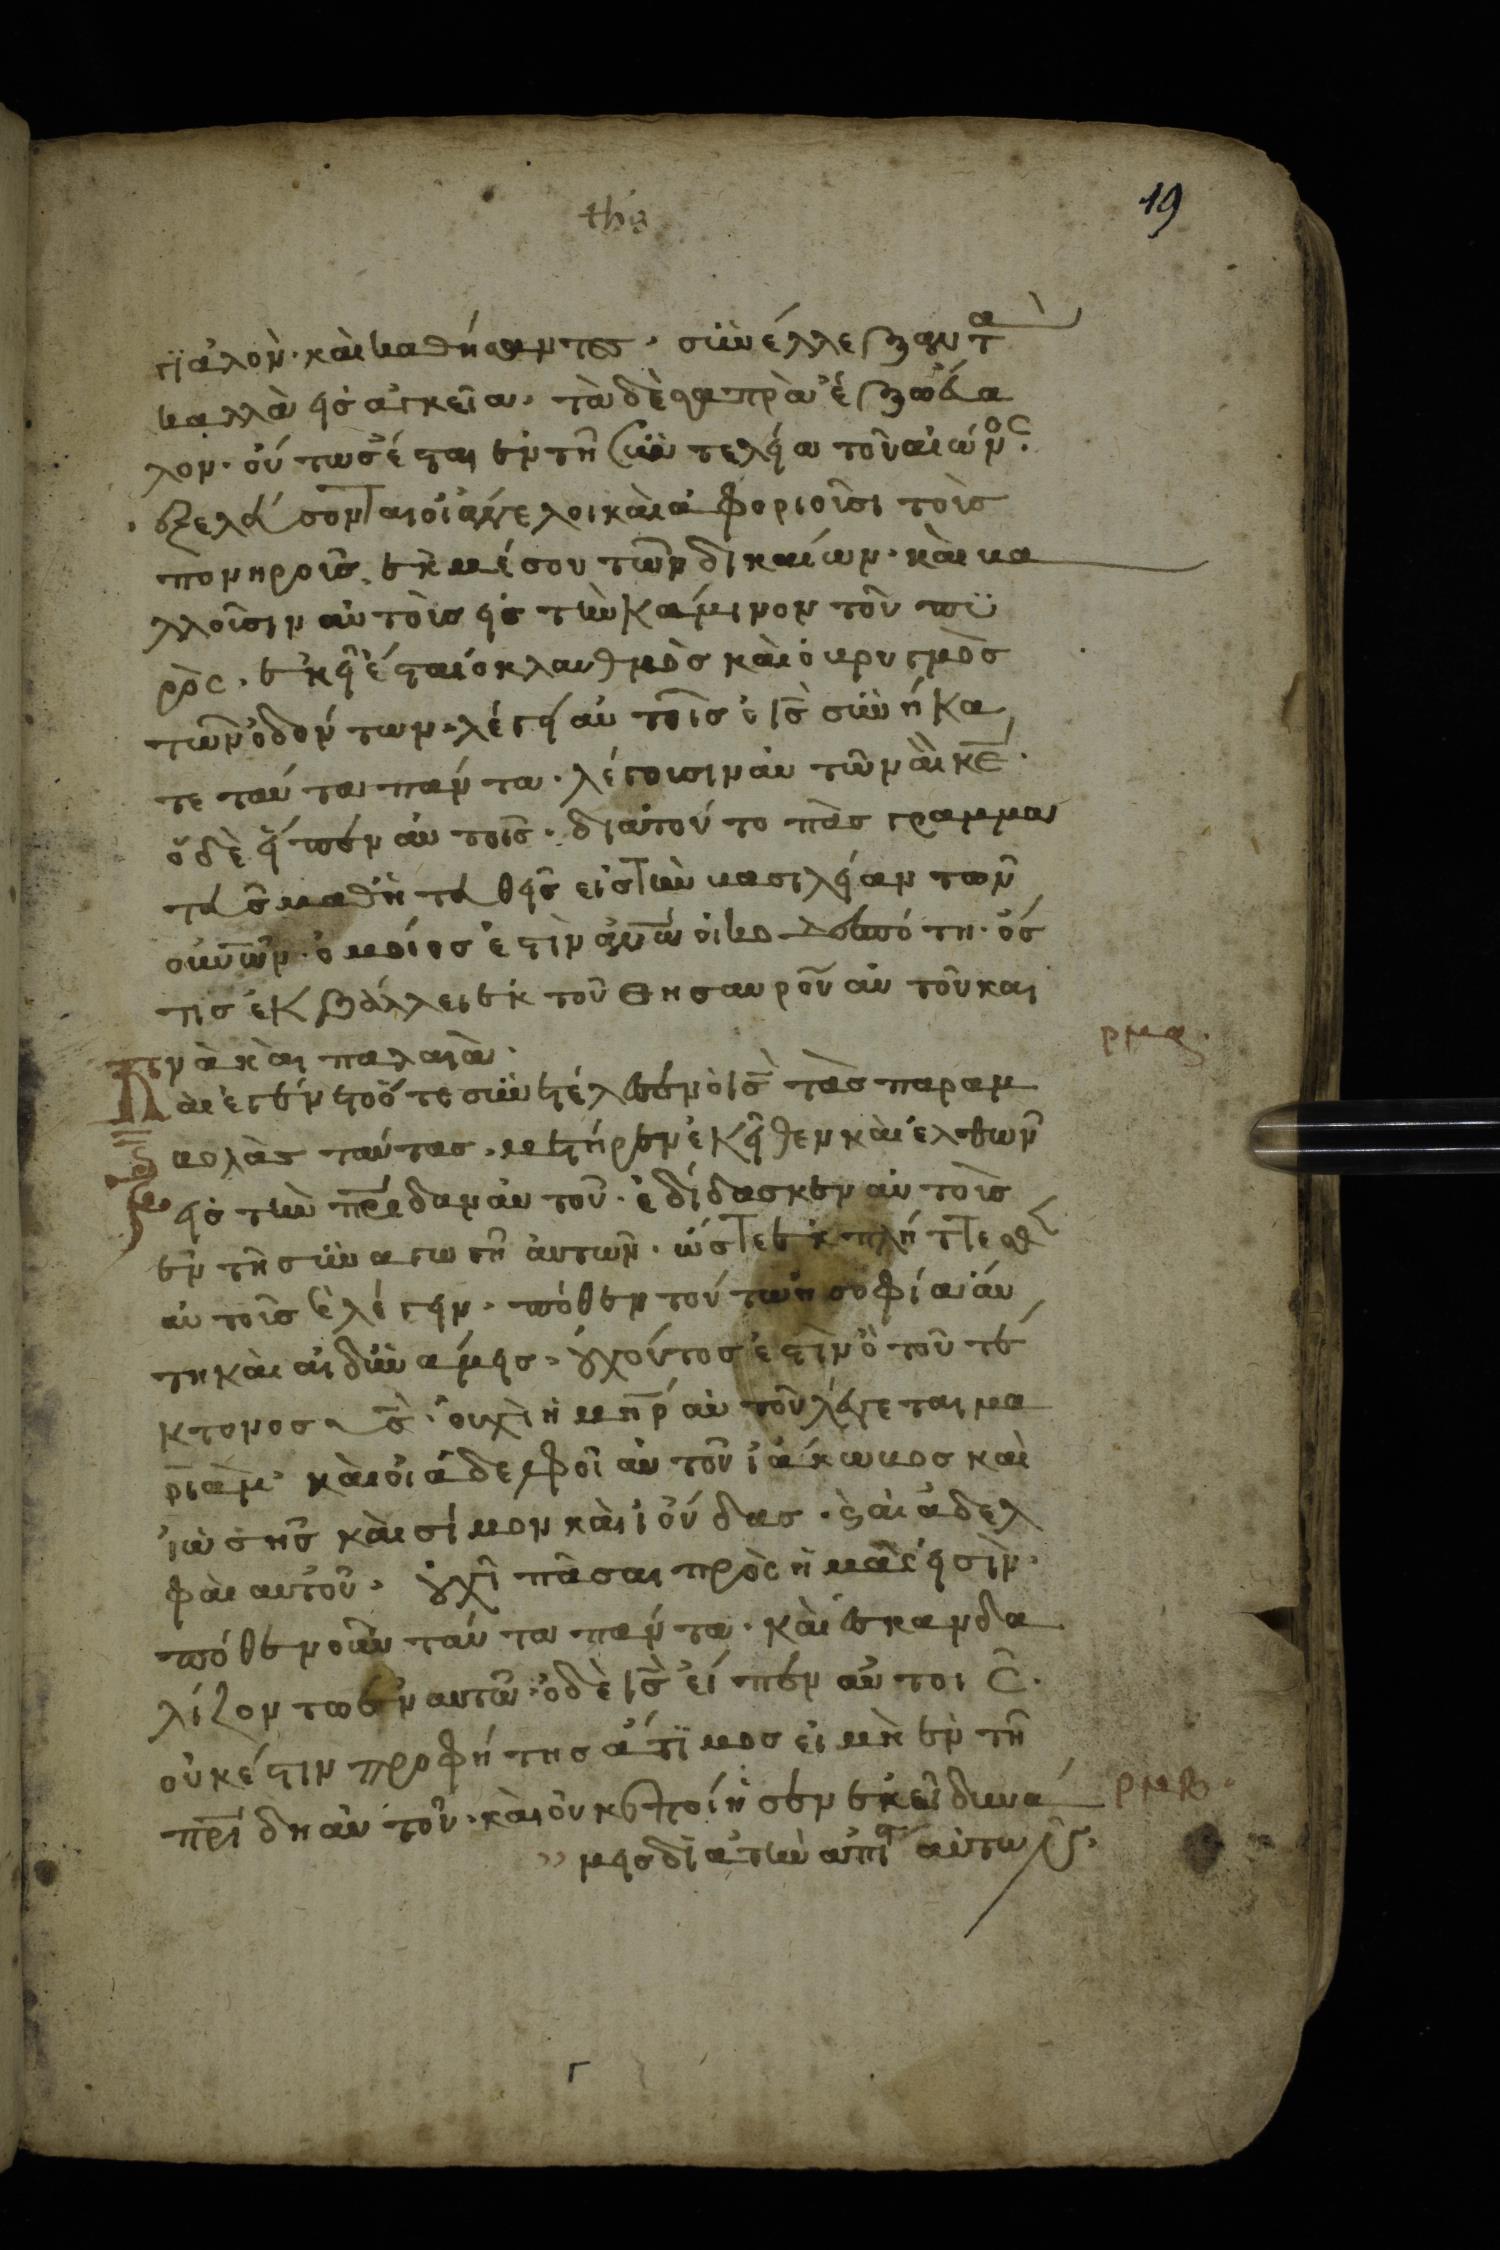 19
γϊαλὸν· καὶ καθήσαντες· σϋνέλλεξαν τὰ
καλλὰ εἰς ἀγκεῖα· τὰ δὲ σαπρὰ ἔξω ἔβα
λον· οὕτως ἔσται ἐν τῇ σϋντελεία τοῦ αἰῶνος·
ἐξελεύσονται οἱ ἄγγελοι καὶ ἀφοριοῦσι τοὺς
πονηροὺς ἐκ μέσου τῶν δικαίων· καὶ βα
λλοῦσιν αὐτοὺς εἰς τὴν κάμινον τοῦ πϋ
ρὸς· ἐκεῖ ἔσται ὁ κλαυθμὸς καὶ ὁ βρυγμὸς
τῶν ὀδόντων· λέγει αὐτοῖς ὁ ις σϋνήκα
τε ταύτα πάντα· λέγουσιν αὐτῶ ναὶ κε·
ὁ δὲ εἶπεν αὐτοῖς· διατούτο πὰς γραμμα
τεὺς μαθητευθεῖς εἰς τὴν βασιλείαν τῶν
οὐνῶν· ὅμοιός ἐστιν ανω οἰκοδεσπότη· ὅσ
τις ἐκβάλλει ἐκ τοῦ θησαυροῦ αὐτοῦ και
νὰ καὶ παλαιὰ·
ρμα·
Καὶ ἐγένετο ὅτε σϋνετέλεσεν ὁ ις τὰς παραβ
βολὰς ταύτας· μετήρεν ἐκεῖθεν καὶ ἐλθων
εἰς τὴν πριδαν αὐτοῦ· ἐδίδασκεν αὐτοὺς
ἐν τῇ σϋναγωγῇ αὐτῶν· ὥστε ἐκπλήττεσθαι
αὐτοὺς ἒ λέγειν· πόθεν τούτω ἡ σοφία αὕ
τη καὶ αἱ δϋνάμεις· οὐχ οὗτος ἐστὶν ὁ τοῦ τέ
κτονος υς· οὐχὶ ἡ μηρ αὐτοῦ λέγεται μα
ριὰμ· καὶ οἱ ἀδελφοὶ αὐτοῦ ἰάκωβος καὶ
ἰωσῆς καὶ σίμον καὶ ἰούδας· ϛ αἱ ἀδελ
φαὶ αυτοῦ· οὐχὶ πᾶσαι πρὸς ἡμᾶς εἰσὶν·
πόθεν οὖν ταύτα πάντα· καὶ ἐσκανδα
λίζοντω ἐν αυτῶ· ὁ δὲ ις εἶπεν αὐτοῖς·
οὐκ έστιν προφήτης ἄτϊμος εἰ μὴ ἐν τῇ
πρίδη αὐτοῦ· καὶ οὐκ ἐποίησεν ἐκεῖ δυνά
ρμβ·
μεις διὰ τὴν ἀπιστ αὐτῶν·